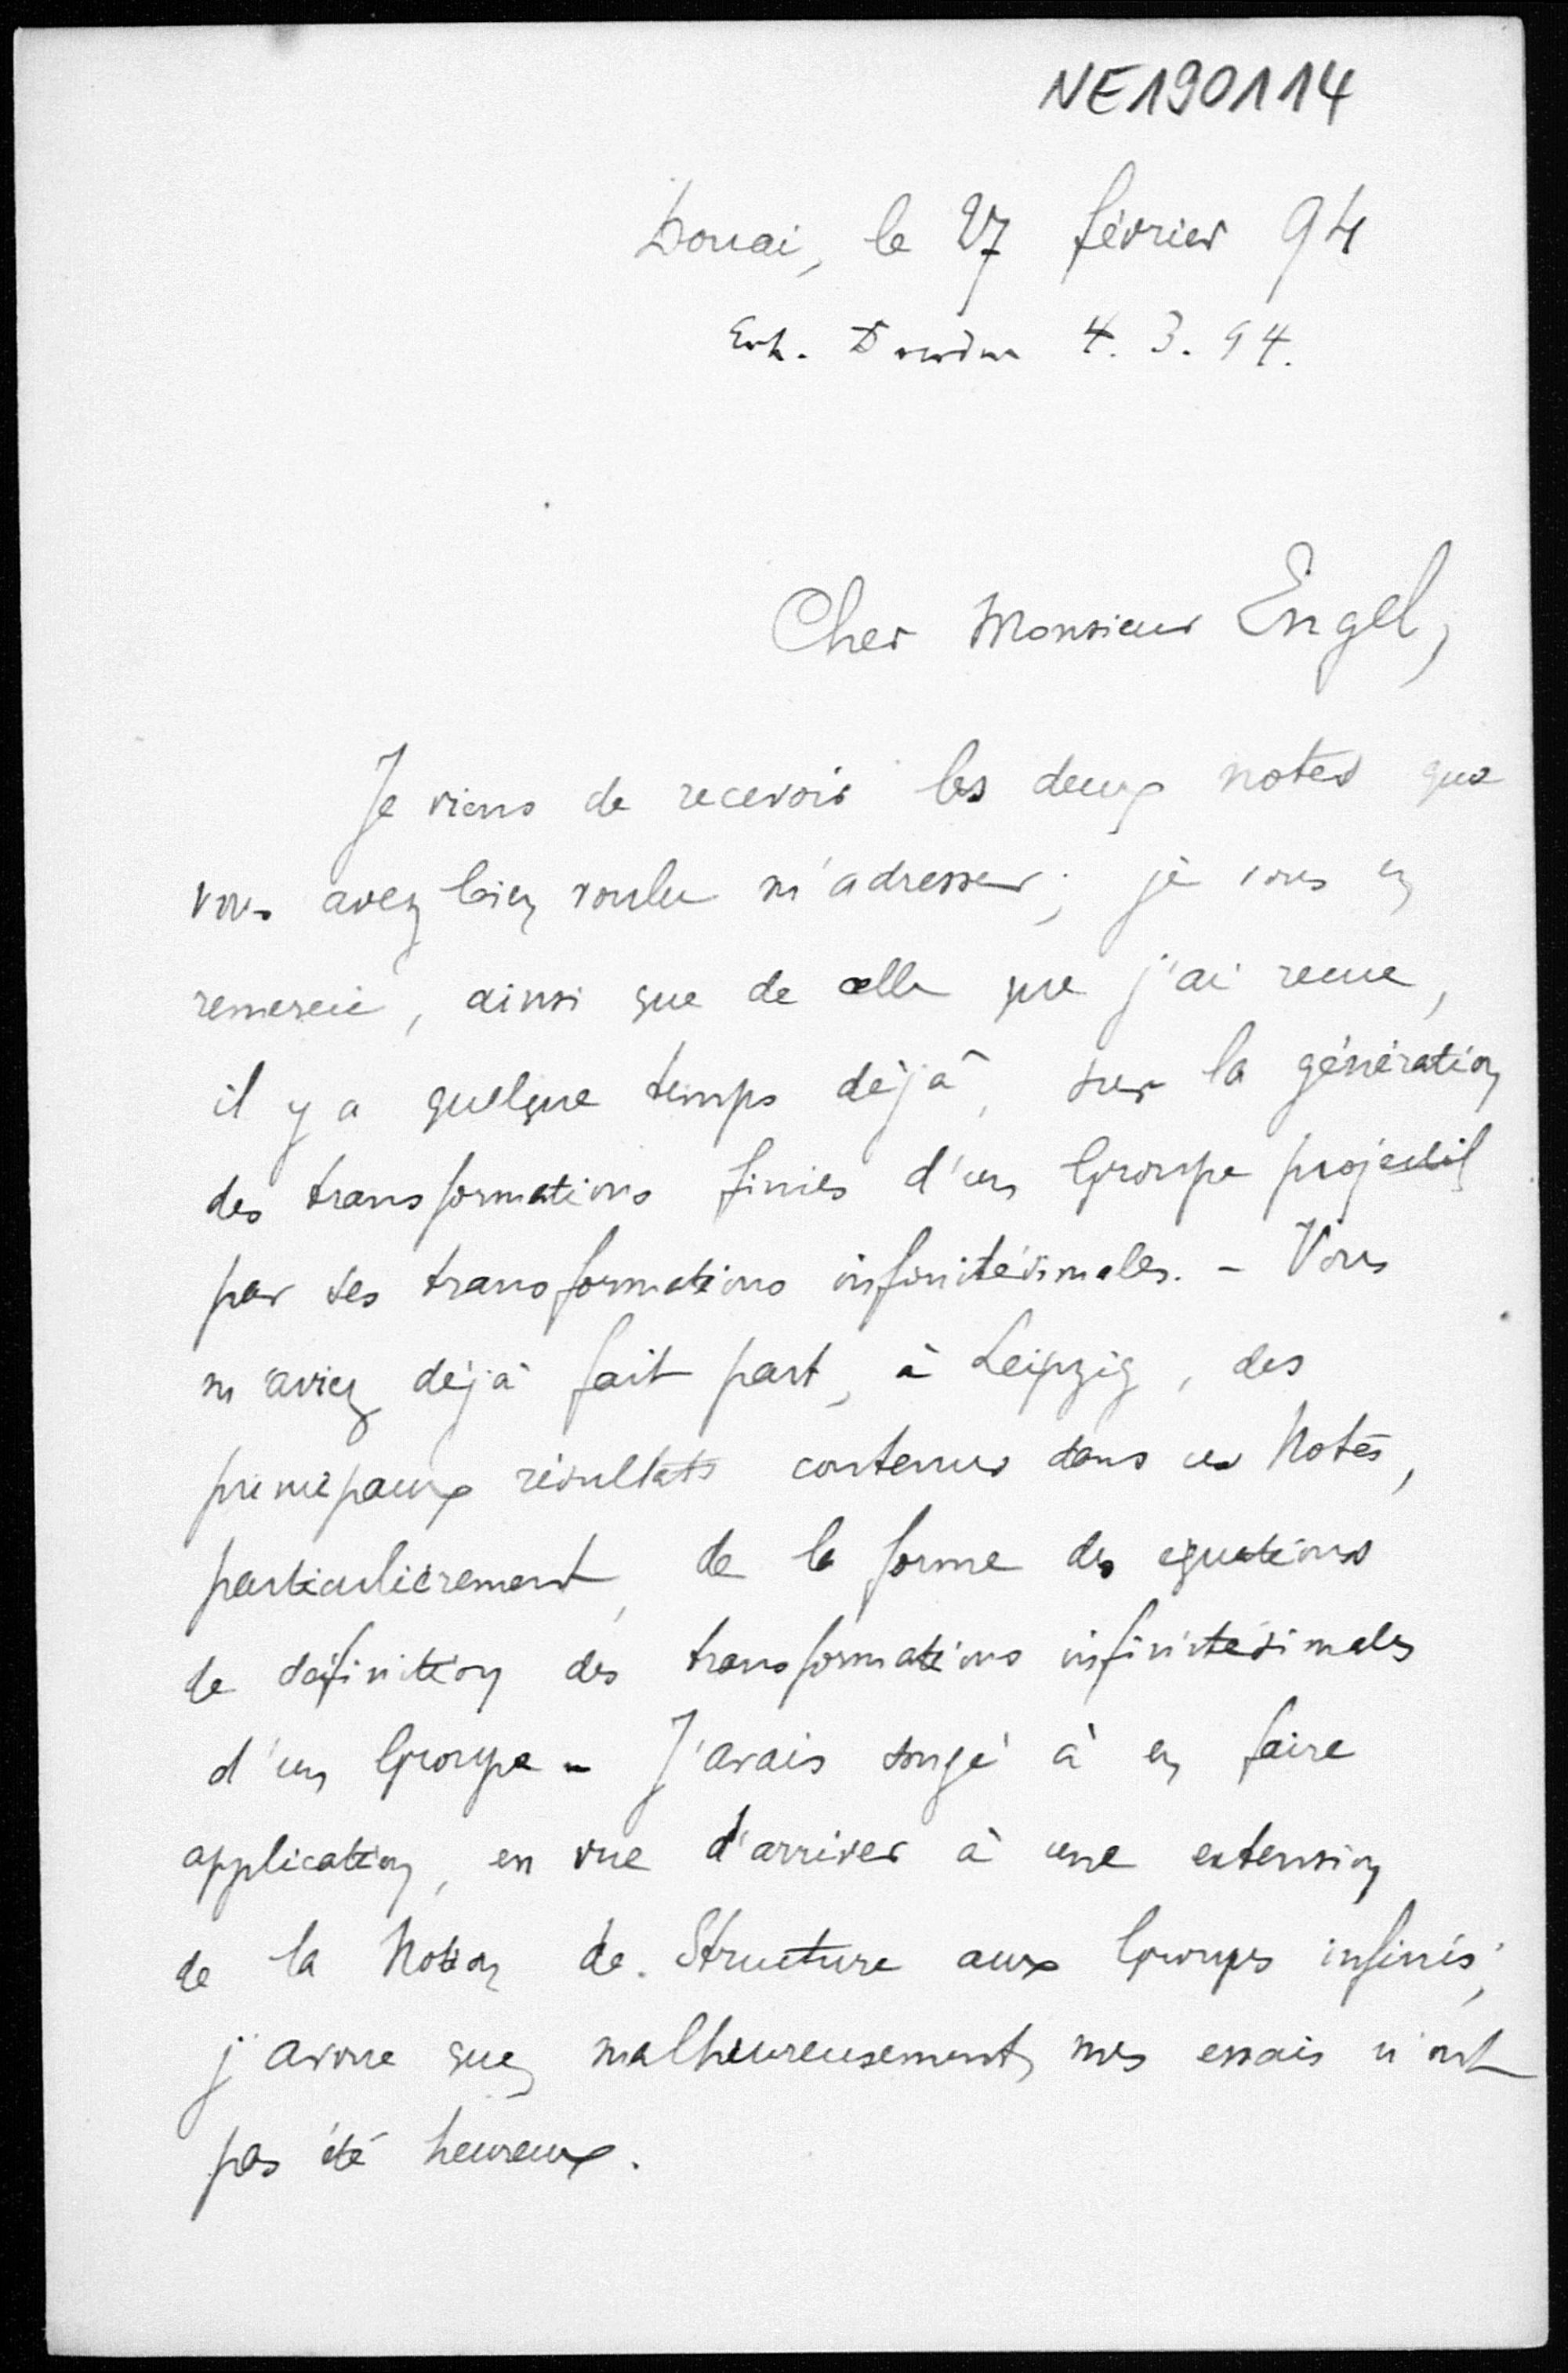 NE190114
Douai, le 27 février 94
Erh. Dresden 4. 3. 94.
Cher Monsieur Engel,
Je viens de recevoir les deux notes que
vous avez bien voulu m'adresser; je vous en
remercie, ainsi que de celle que j'ai reçue,
il y a quelque temps déjà, sur la génération
des transformations finies d'un Groupe projectif
par ses transformations infinitésimales. - Vous
m'aviez déjà fait part, à Leipzig, des
principaux résultats contenus dans ces Notes,
particulièrement, de la forme des équations
de définition des transformations infinitésimales
d'un Groupe - J'avais songé à en faire
application, en vue d'arriver à une extension
de la Notion de Structure aux Groupes infinis;
j'avoue que, malheureusement, mes essais n'ont
pas été heureux.